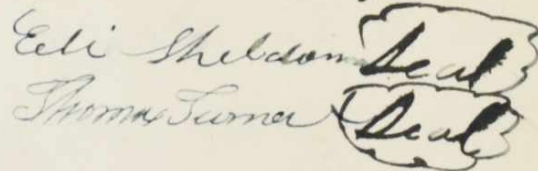 Eeli Sheldon Seal
Thomas Turner Seal